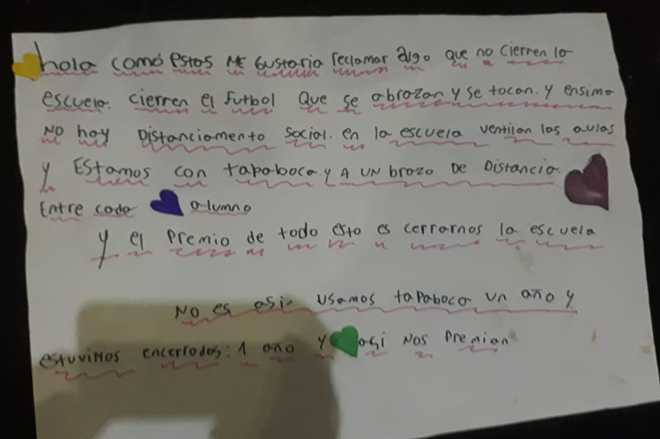 hola como estas ME Gustaria reclamar algo que no cierren la
escuela. cierren el Futbol Que se abrazan y se tocan. y ensima
NO hay DIstanciamento social. en la escuela ventilan las aulas
y EStamos con tapaboca y A UN brazo DE DIstancia
Entre cada alumno
y el Premio de todo esto es cerrarnos la escuela
NO es asi. usamos tapaboca un año y
estuviMos encerrados: 1 año y asi NOS Premian